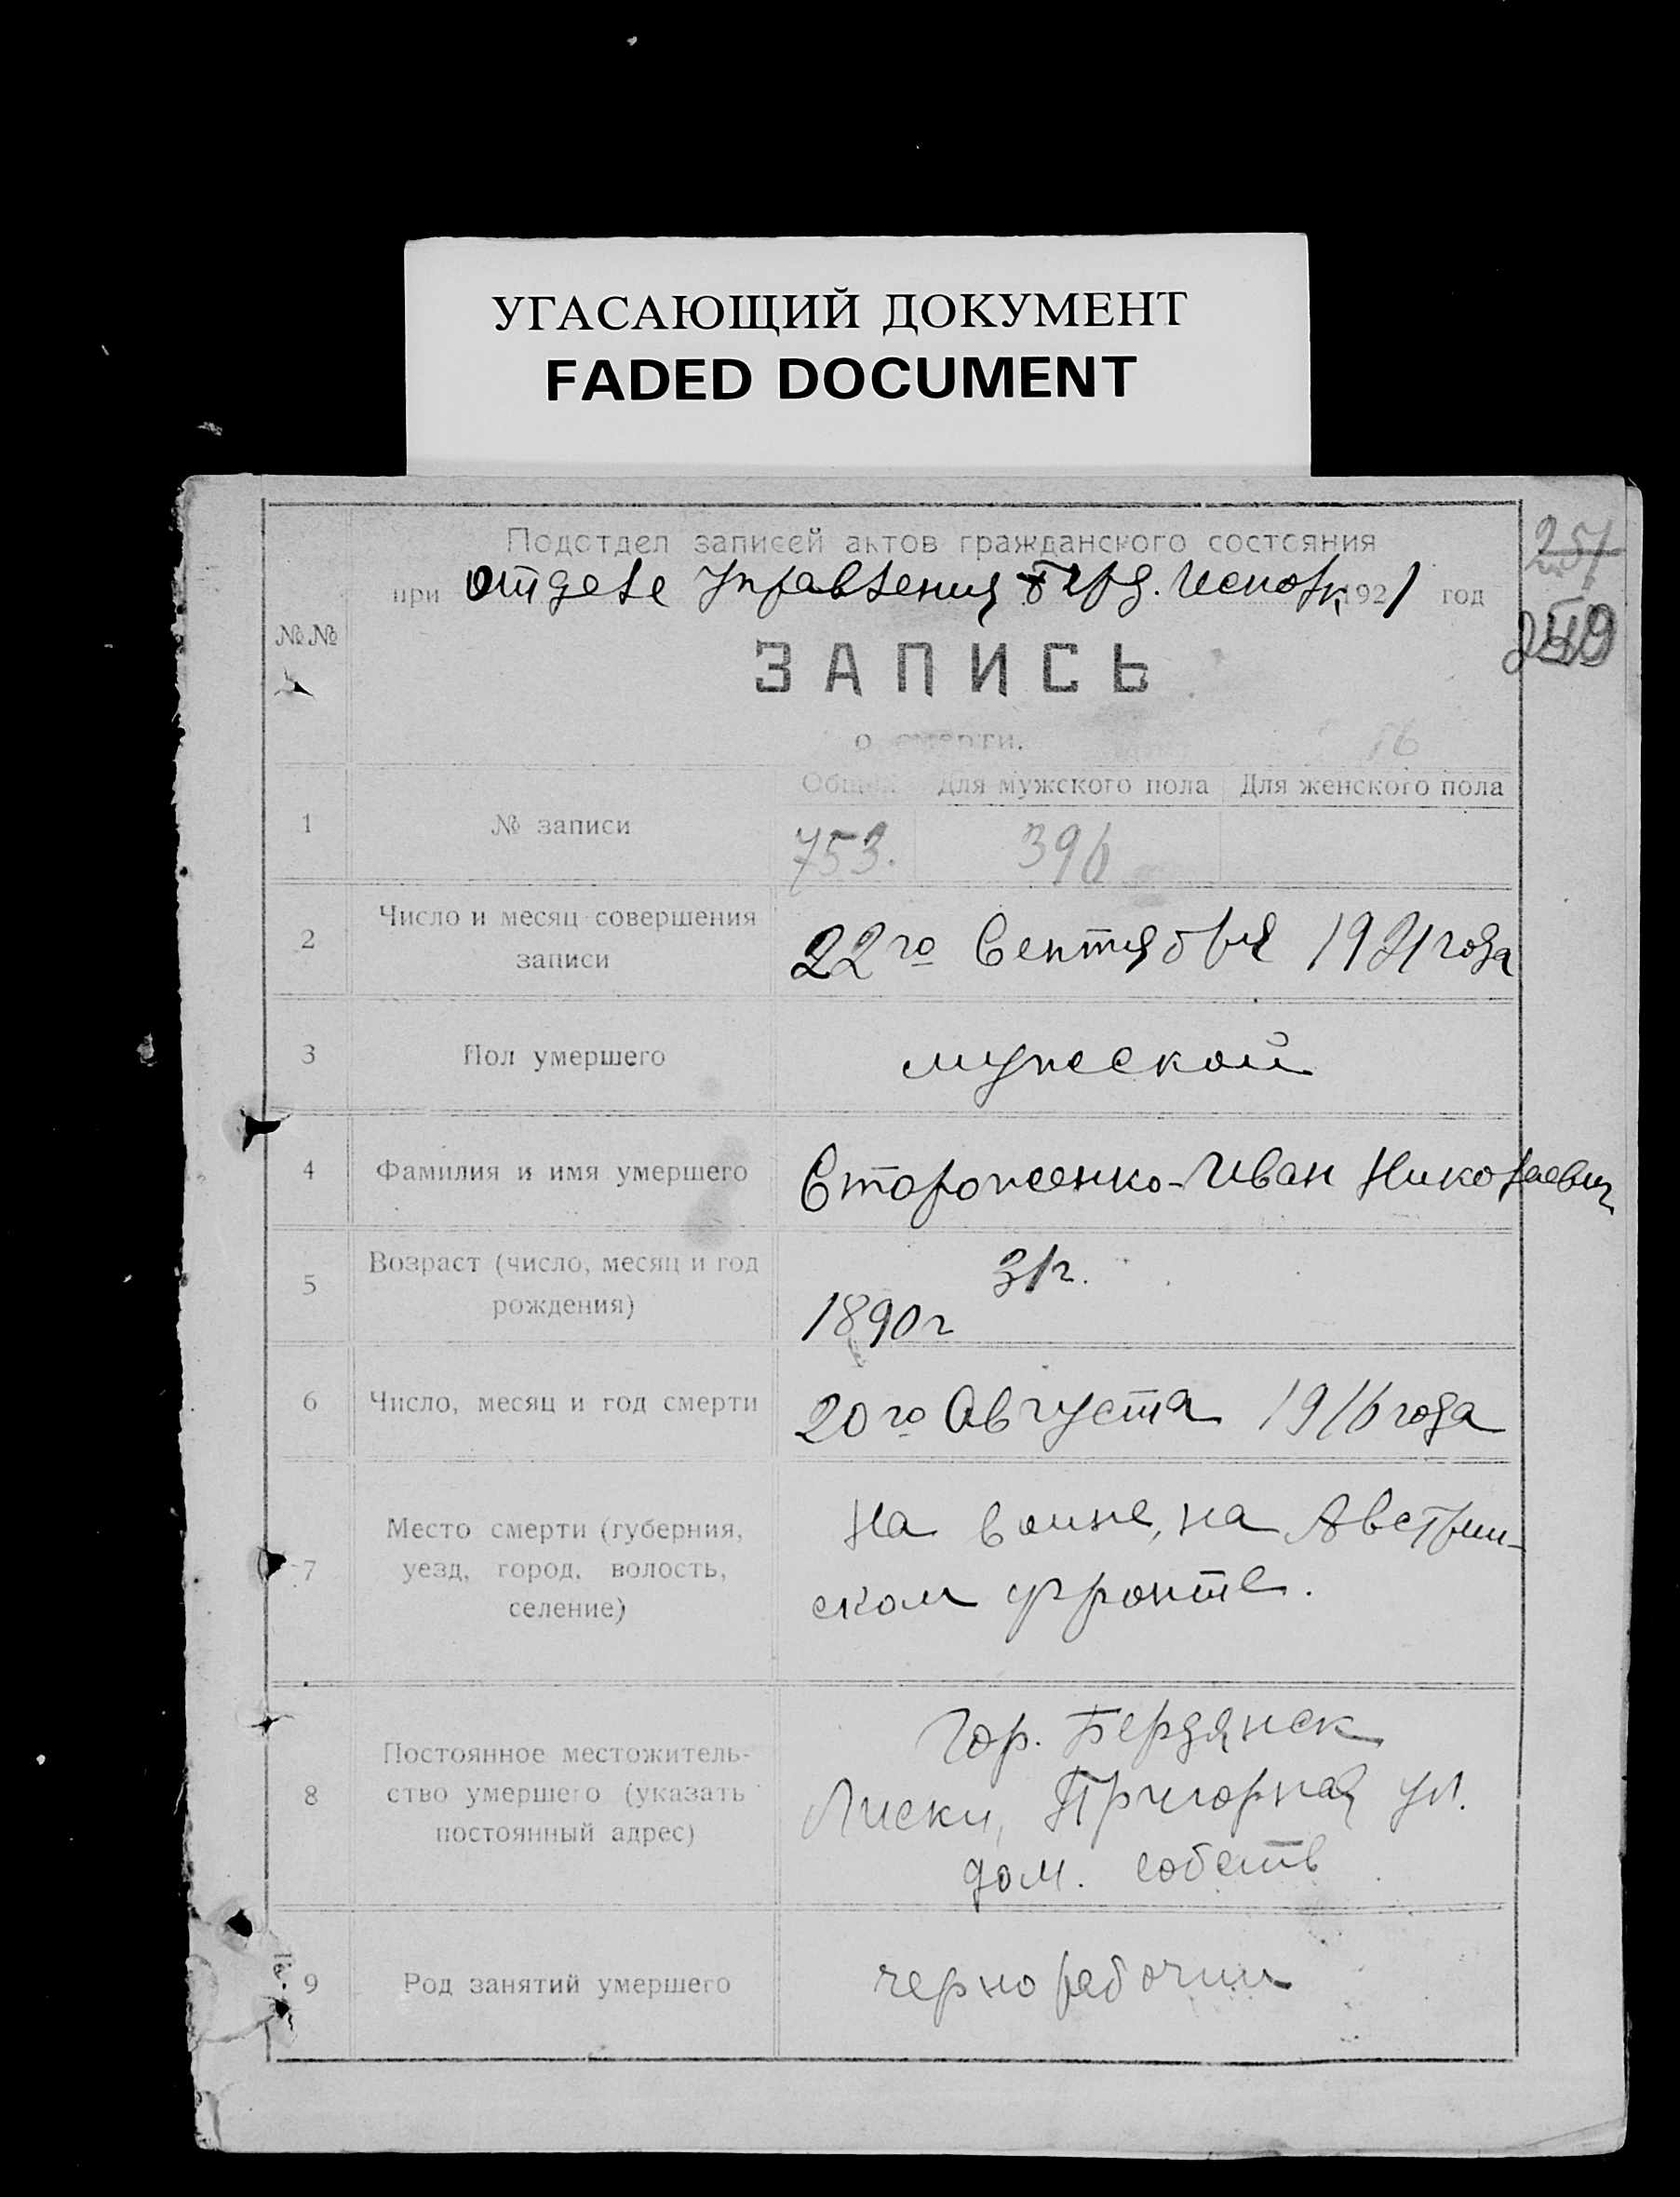 УГАСАЮЩИЙ ДОКУМЕНТ
FADED DOCUMENT
Подотдел записей актов гражданского состояния
при отделе управления Берд. Исполк 1921 год
251
249
№№
ЗАПИСЬ
о смерти.
16
Общий Для мужского пола Для женского пола
1 № записи 753. 396
2 Число и месяц совершения
записи
22го Сентября 1921 года
3 Пол умершего мужеской
4 Фамилия и имя умершего Стороженко-Иван Николаевич
5 Возраст (число, месяц и год
рождения)
31г.
1890г
6 Число, месяц и год смерти 20го Августа 1916 года
7 Место смерти (губерния,
уезд, город, волость,
селение)
На воине, на Австрии-
ском фронте.
8 Постоянное местожитель-
ство умершего (указать
постоянный адрес)
Гор. Бердянск
Лиски, Пригорная ул.
дом. собств
9 Род занятий умершего чернорабочии